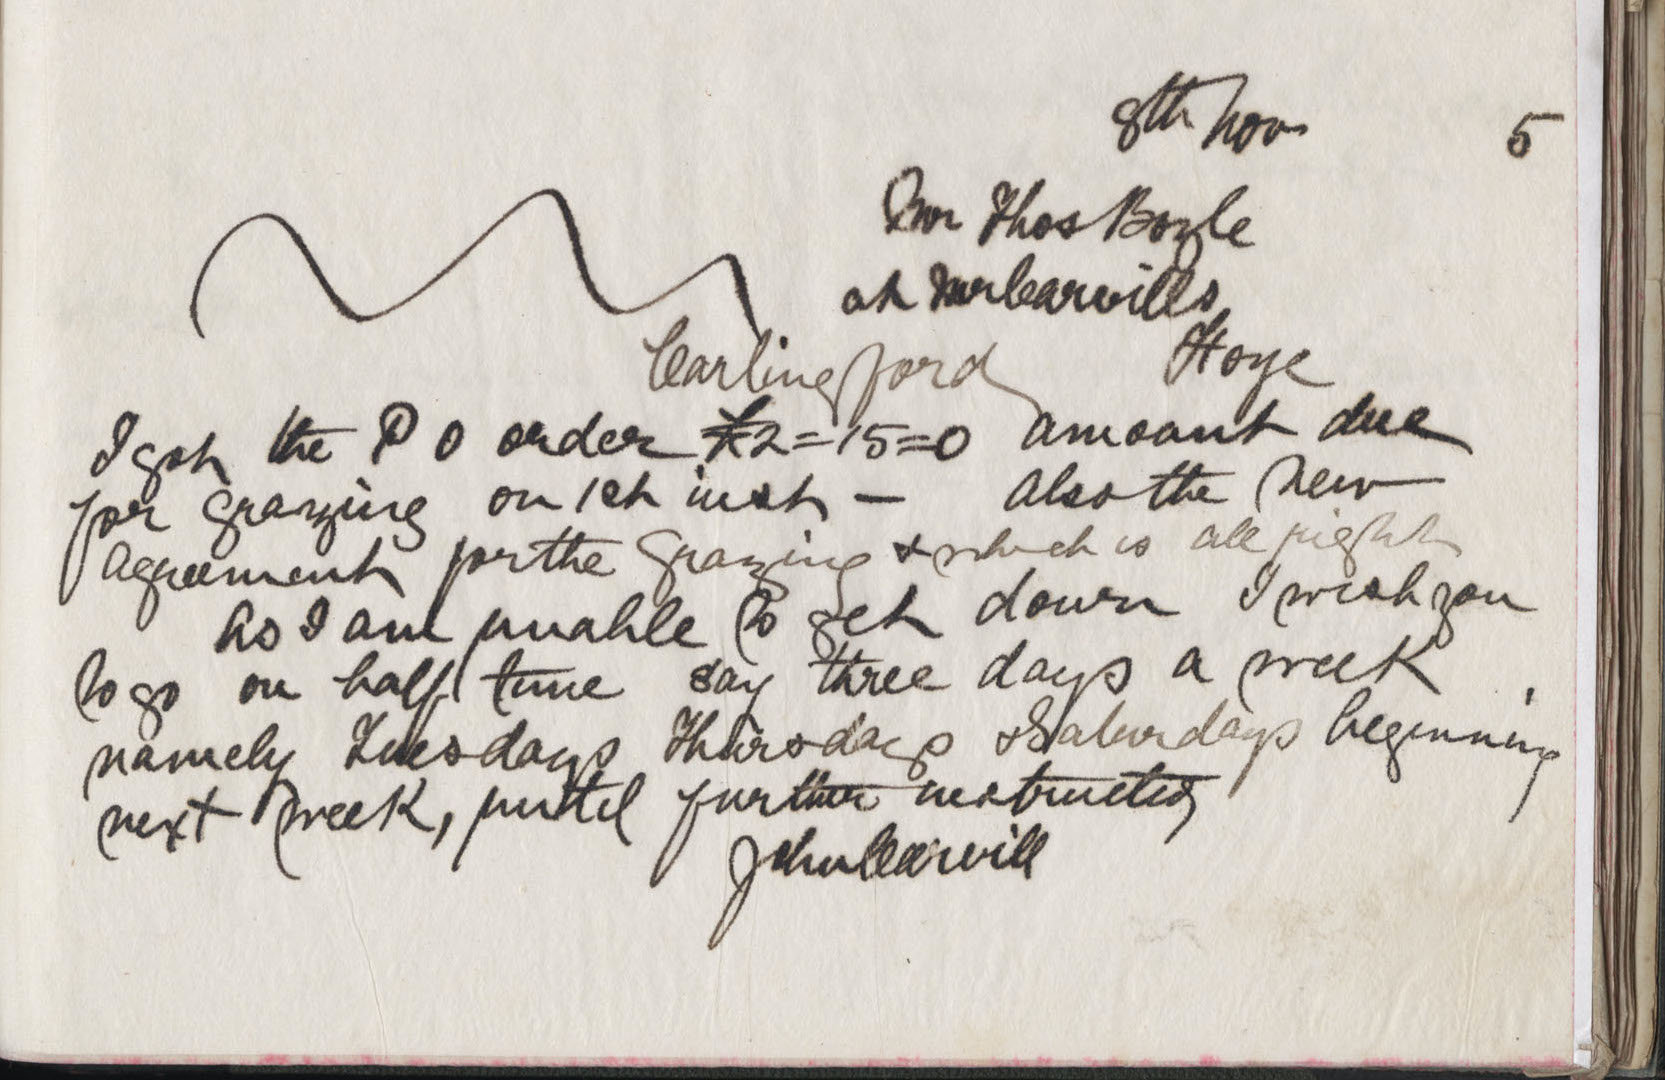 8th Nov 5
Mr Thos Boyle
at Mr Carvills
Carlingford
I got the P O order £2=15=0 amount due
for grazing on 1st inst - also the new
agreement for the grazing & which is all right
As I am unable to get down I wish you
to go on half time say three days a week
namely Tuesdays Thursdays & Saturdays beginning
next week, until further instructed
John Carvill